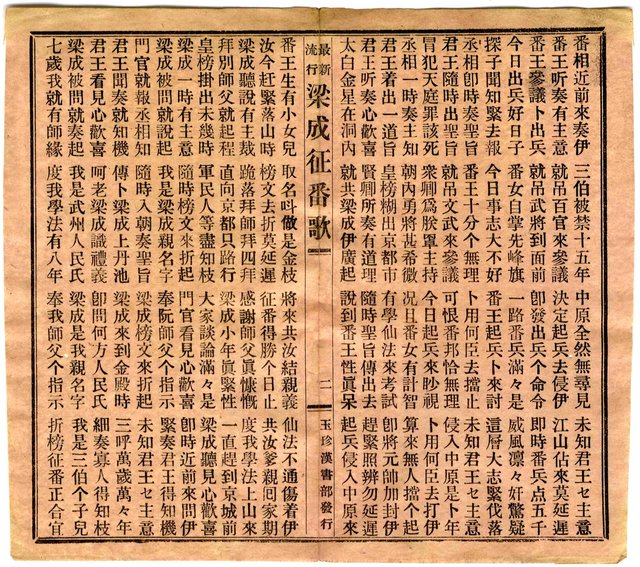 番相近前來奏伊 三伯被禁十五年 中原全然無尋見 未知君王セ主意
番王听奏有主意 就吊百官來參議 決定起兵去侵伊 江山佔來莫延遲
番王參議卜出兵 就吊武將到面前 卽發出兵个命令 即時番兵点五千
今日出兵好日子 番女自掌先峰旗 一路番兵滿々是 威風凛々奸驚疑
探子聞知緊去報 今日事志大不好 番王起兵卜來討 這層大志緊伐落
丞相卽時奏聖旨 番王十分个無理 卜用何臣去擋止 未知君王セ主意
君王隨時出聖旨 就吊文武來參議 可恨番邦恰無理 侵入中原是卜年
冒犯天庭罪該死 衆卿爲朕罩主持 今日起兵來眇視 卜用何臣去打伊
丞相一時奏主知 朝內勇將甚希徵 況且番女有計智 算來無人擋个起
君王着出一道旨 皇榜糊出京都市 有學仙法來考試 卽將元帥加封伊
君王听奏心歡喜 賢卿所奏有道理 隨時聖旨傳出去 趕緊照辦勿延遲
太白金星在洞內 就共梁成伊廣起 說到番王性眞呆 起兵侵入中原來
最新流行 梁成征番歌 二 玉珍漢書部發行
番王生有小女兒 取名呌做是金枝 將來共汝結親義 仙法不通傷着伊
汝今赶緊落山時 榜文去折莫延遲 征番得勝个日止 共汝爹親回家期
梁成聽說有主裁 跪落拜師拜四拜 感謝師父眞慷慨 度我學法上山來
拜別師父就起程 直向京都只路行 梁成小年眞緊性 一直趕到京城前
皇榜掛出未幾時 軍民人等盡知枝 大家談論滿々是 梁成聽見心歡喜
梁成一時有主意 隨時榜文來折起 門官看見心歡喜 卽時近前來問伊
梁成被問就說起 我是梁成親名字 奉阮師父个指示 緊奏君王得知機
門官就報丞相知 隨時入朝奏聖旨 梁成榜文來折起 未知君王セ主意
君王聞奏就知機 傳卜梁成上丹池 梁成來到金殿時 三呼萬歲萬々年
君王看見心歡喜 呵老梁成識禮義 卽問何方人民氏 細奏寡人得知枝
梁成被問就奏起 我是武州人民氏 梁成是我親名字 我是三伯个子兒
七歲我就有師緣 度我學法有八年 奉我師父个指示 折榜征番正合宜